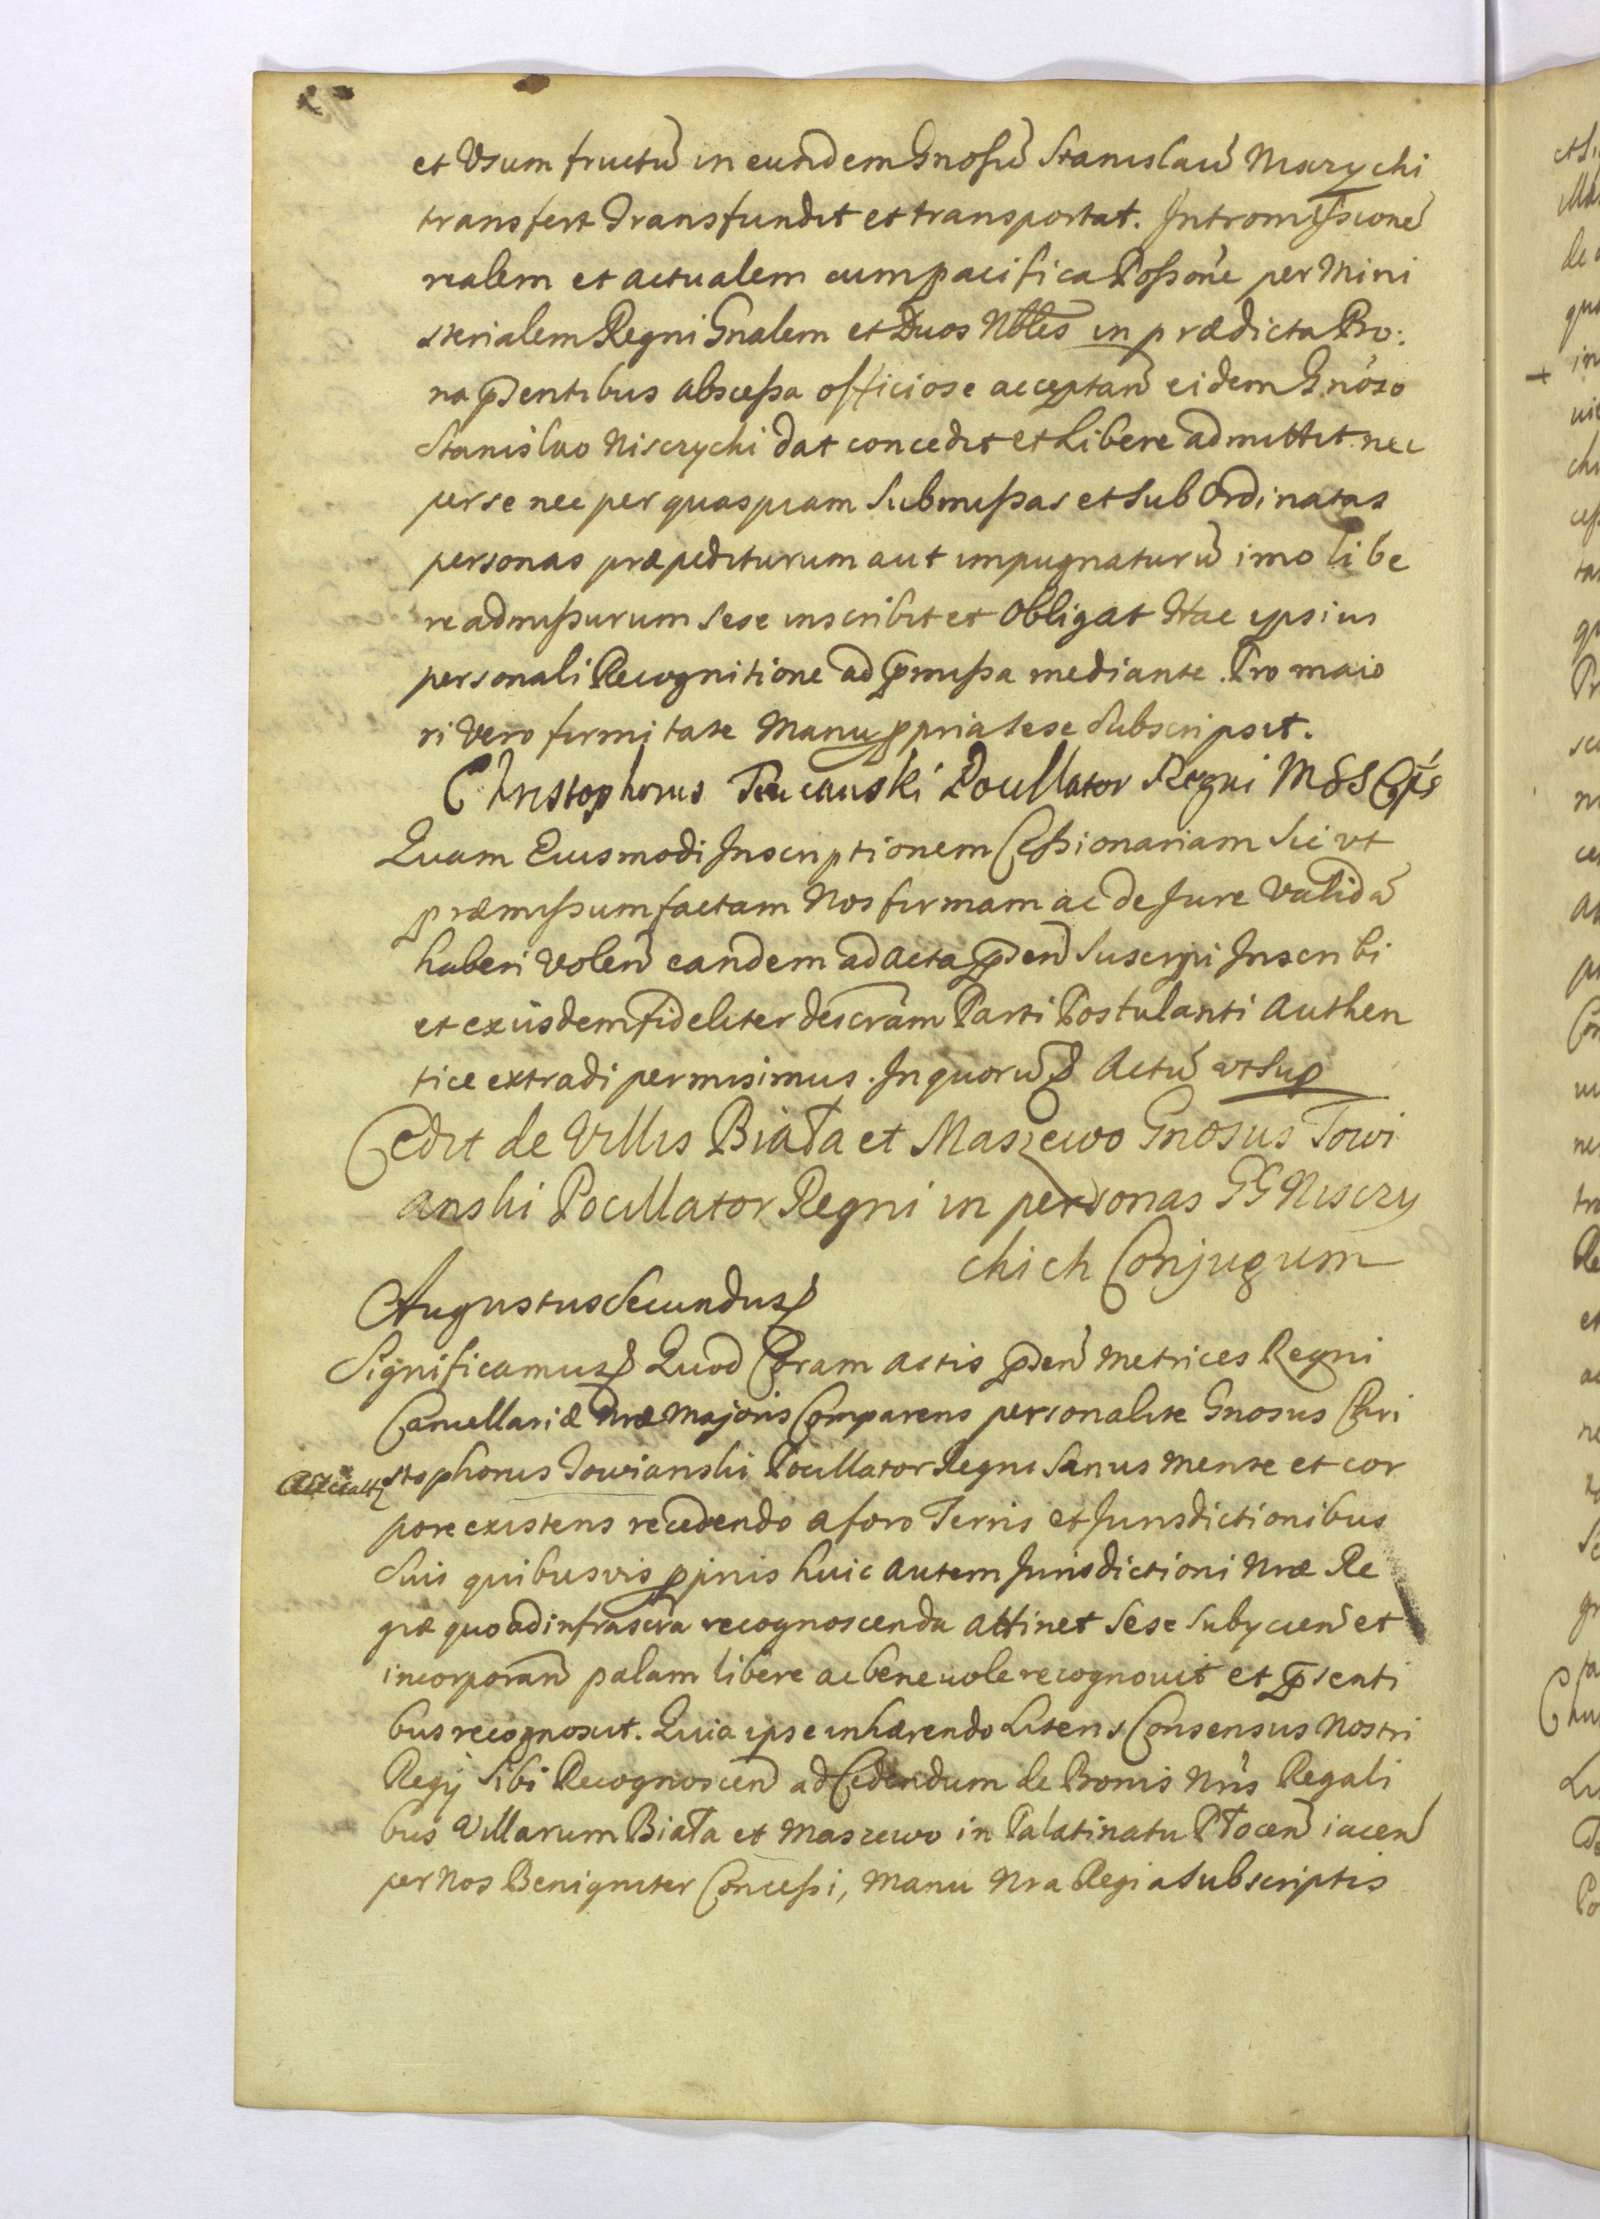 et Vsum fructũ in eundem Gnosũ Stanislaũ Nisczychi
transfert Transfundit et transportat. Intromissionẽ
realem et actualem cum pacifica Possoñe per Mini
sterialem Regni Gnalem et Duos Nobles in prædicta Bo:
na pñdentibus abscessa officiose acceptañ eidem Gnoso
Stanislao Nisczychi dat concedit et Libere admittit nec
per se nec per quaspiam Submissas et Sub Ordinatas
personas præpediturum aut impugnaturũ imo libe
re admissurum Sese inscribit et Obligat Hac ipsius
personali Recognitione ad pmissa mediante. Pro maio
ri Vero firmitate Manu ppria sese Subscripsit.
Christophorus Towianski Pocillator Regni
Quam Eiusmodi Inscriptionem Cessionariam Sic vt
præmissum factam Nos firmam ac de Jure Validã
haberi Voleñ eandem ad Acta pñdeñ Suscipi Inscribi
et ex iisdem fideliter descram Parti Postulanti Authen
tice extradi permisimus. In quorũ Actũ vt Sup
Cedit de Villis Biała et Maszewo Gnosus Towi
anski Pocillator Regni in personas GG Niszczy
chich Conjugum
Augustus Secundus
Significamus Quod Coram actis pñdeñ Metrices Regni
Cancellariæ Nræ Majoris Comparens personalite Gnosus Chri
stophorus Towianski Pocillator Regni Sanus mente et cor
pore existens recedendo a foro Terris et Jurisdictionibus
Suis quibusvis ppriis huic autem Jurisdictioni Nræ Re
giæ quo ad infrascra recognoscenda attinet Sese Subycieñ et
incorporañ palam libere ac beneuole recognouit et pñsenti
bus recognoscit. Quia ipse inhærendo Literis Consensus Nostri
Regij Sibi Recognosceñ ad Cedendum de Bonis Nris Regali
bus Villarum Biała et Maszewo in Palatinatu Płoceñ iaceñ
per Nos Benigniter Concessi, Manu Nra Regia Subscriptis